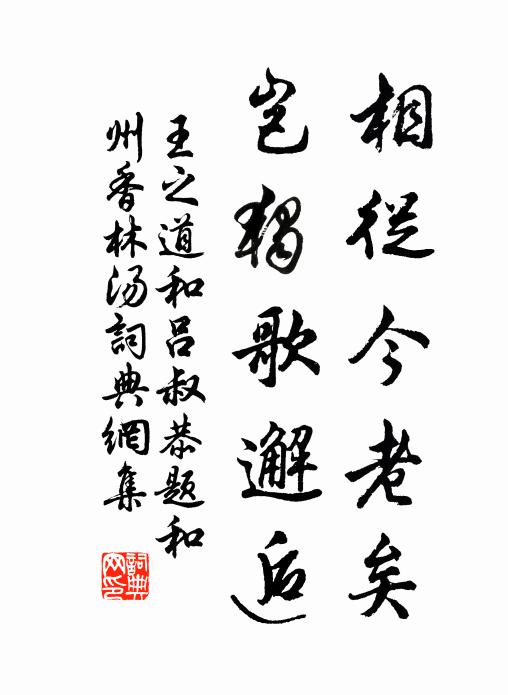 相從今老矣
岂獨歌邂逅
王之道和吕叔恭题和
州香林汤詞典網集
詞典
网印